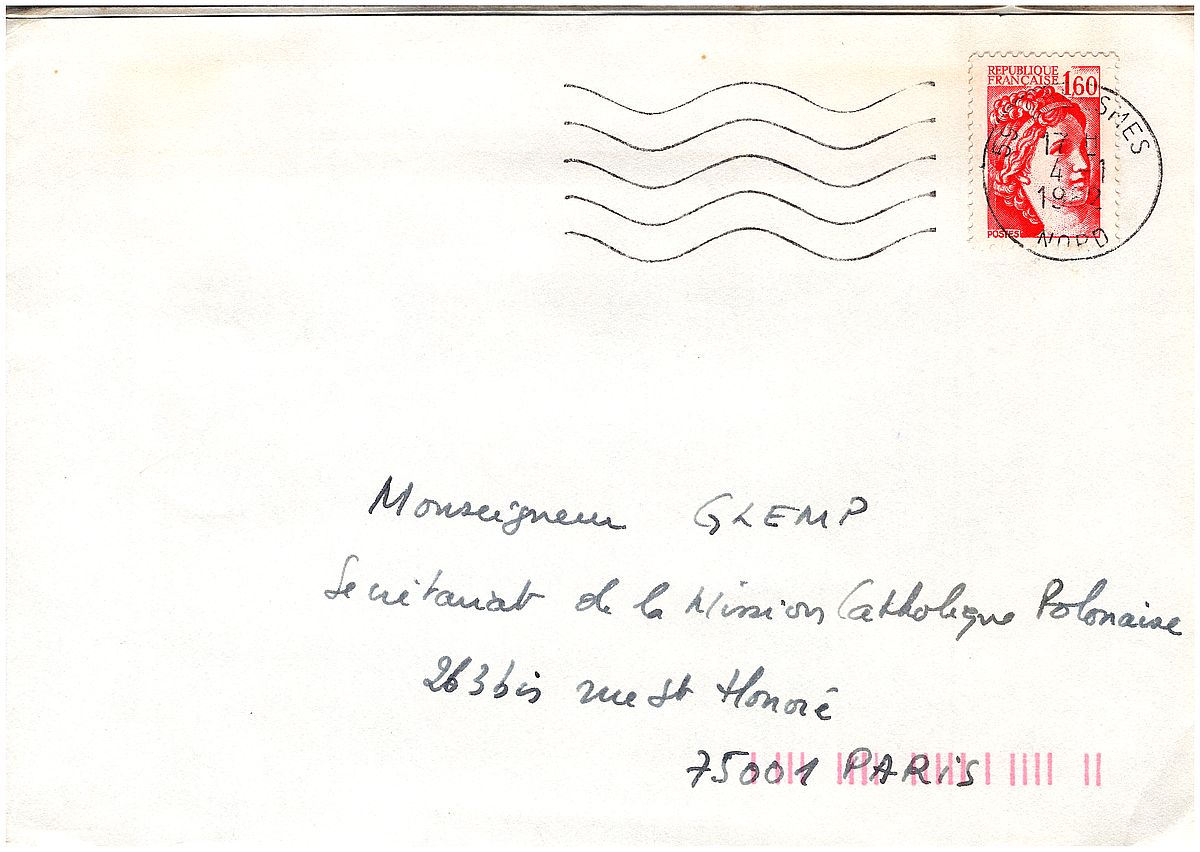 REPUBLIQUE
FRANÇAISE 1,60
POSTES
17 H
4 -1
19 2
NORD
Monseigneur GLEMP
Secrétariat de la Mission Catholique Polonaise
263 bis rue St Honoré
75001 PARIS